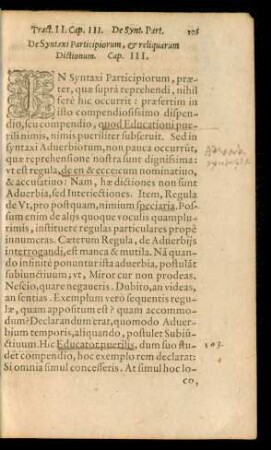 Tract. II. Cap. III. De Synt. Part. 105
De Syntaxi Participiorum, & reliquarum
Dictionum. Cap. III.
IN Syntaxi Participiorum, præ-
ter, quæ suprà reprehendi, nihil
ferè hic occurrit: præsertim in
isto compendiosissimo dispen-
dio, seu compendio, quod Educationi pue-
rili nimis, nimis pueriliter subseruit. Sed in
syntaxi Aduerbiotum, non pauca occurrũt,
quæ reprehensione nostra sunt dignissima:
vt est regula, de en & ecce cum nominatiuo,
& accusatiuo: Nam, hæ dictiones non sunt
Aduerbia, sed Interiectiones. Item, Regula
de Vt, pro postquam, nimium speciaria. Pos-
sum enim de alijs quoque voculis quamplu-
rimis, instituere regulas particulares propè
innumeras. Cæterum Regula, de Aduerbijs
interrogandi, est manca & mutila. Nã quan-
do infinitè ponuntur ista aduerbia, postulãt
subiunctiuum, vt, Miror cur non prodeas.
Nescio, quare negaueris. Dubito, an videas,
an sentias. Exemplum verò sequentis regu-
læ, quàm appositum est? quam accommo-
dum? Declarandum erat, quomodo Aduer-
bium temporis, aliquando, postulet Subiũ-
ctiuum. Hic Educator puerilis, dum suo stu-
det compendio, hoc exemplo rem declarat:
Si omnia simul concesseris. At simul hoc lo-
co,
103.